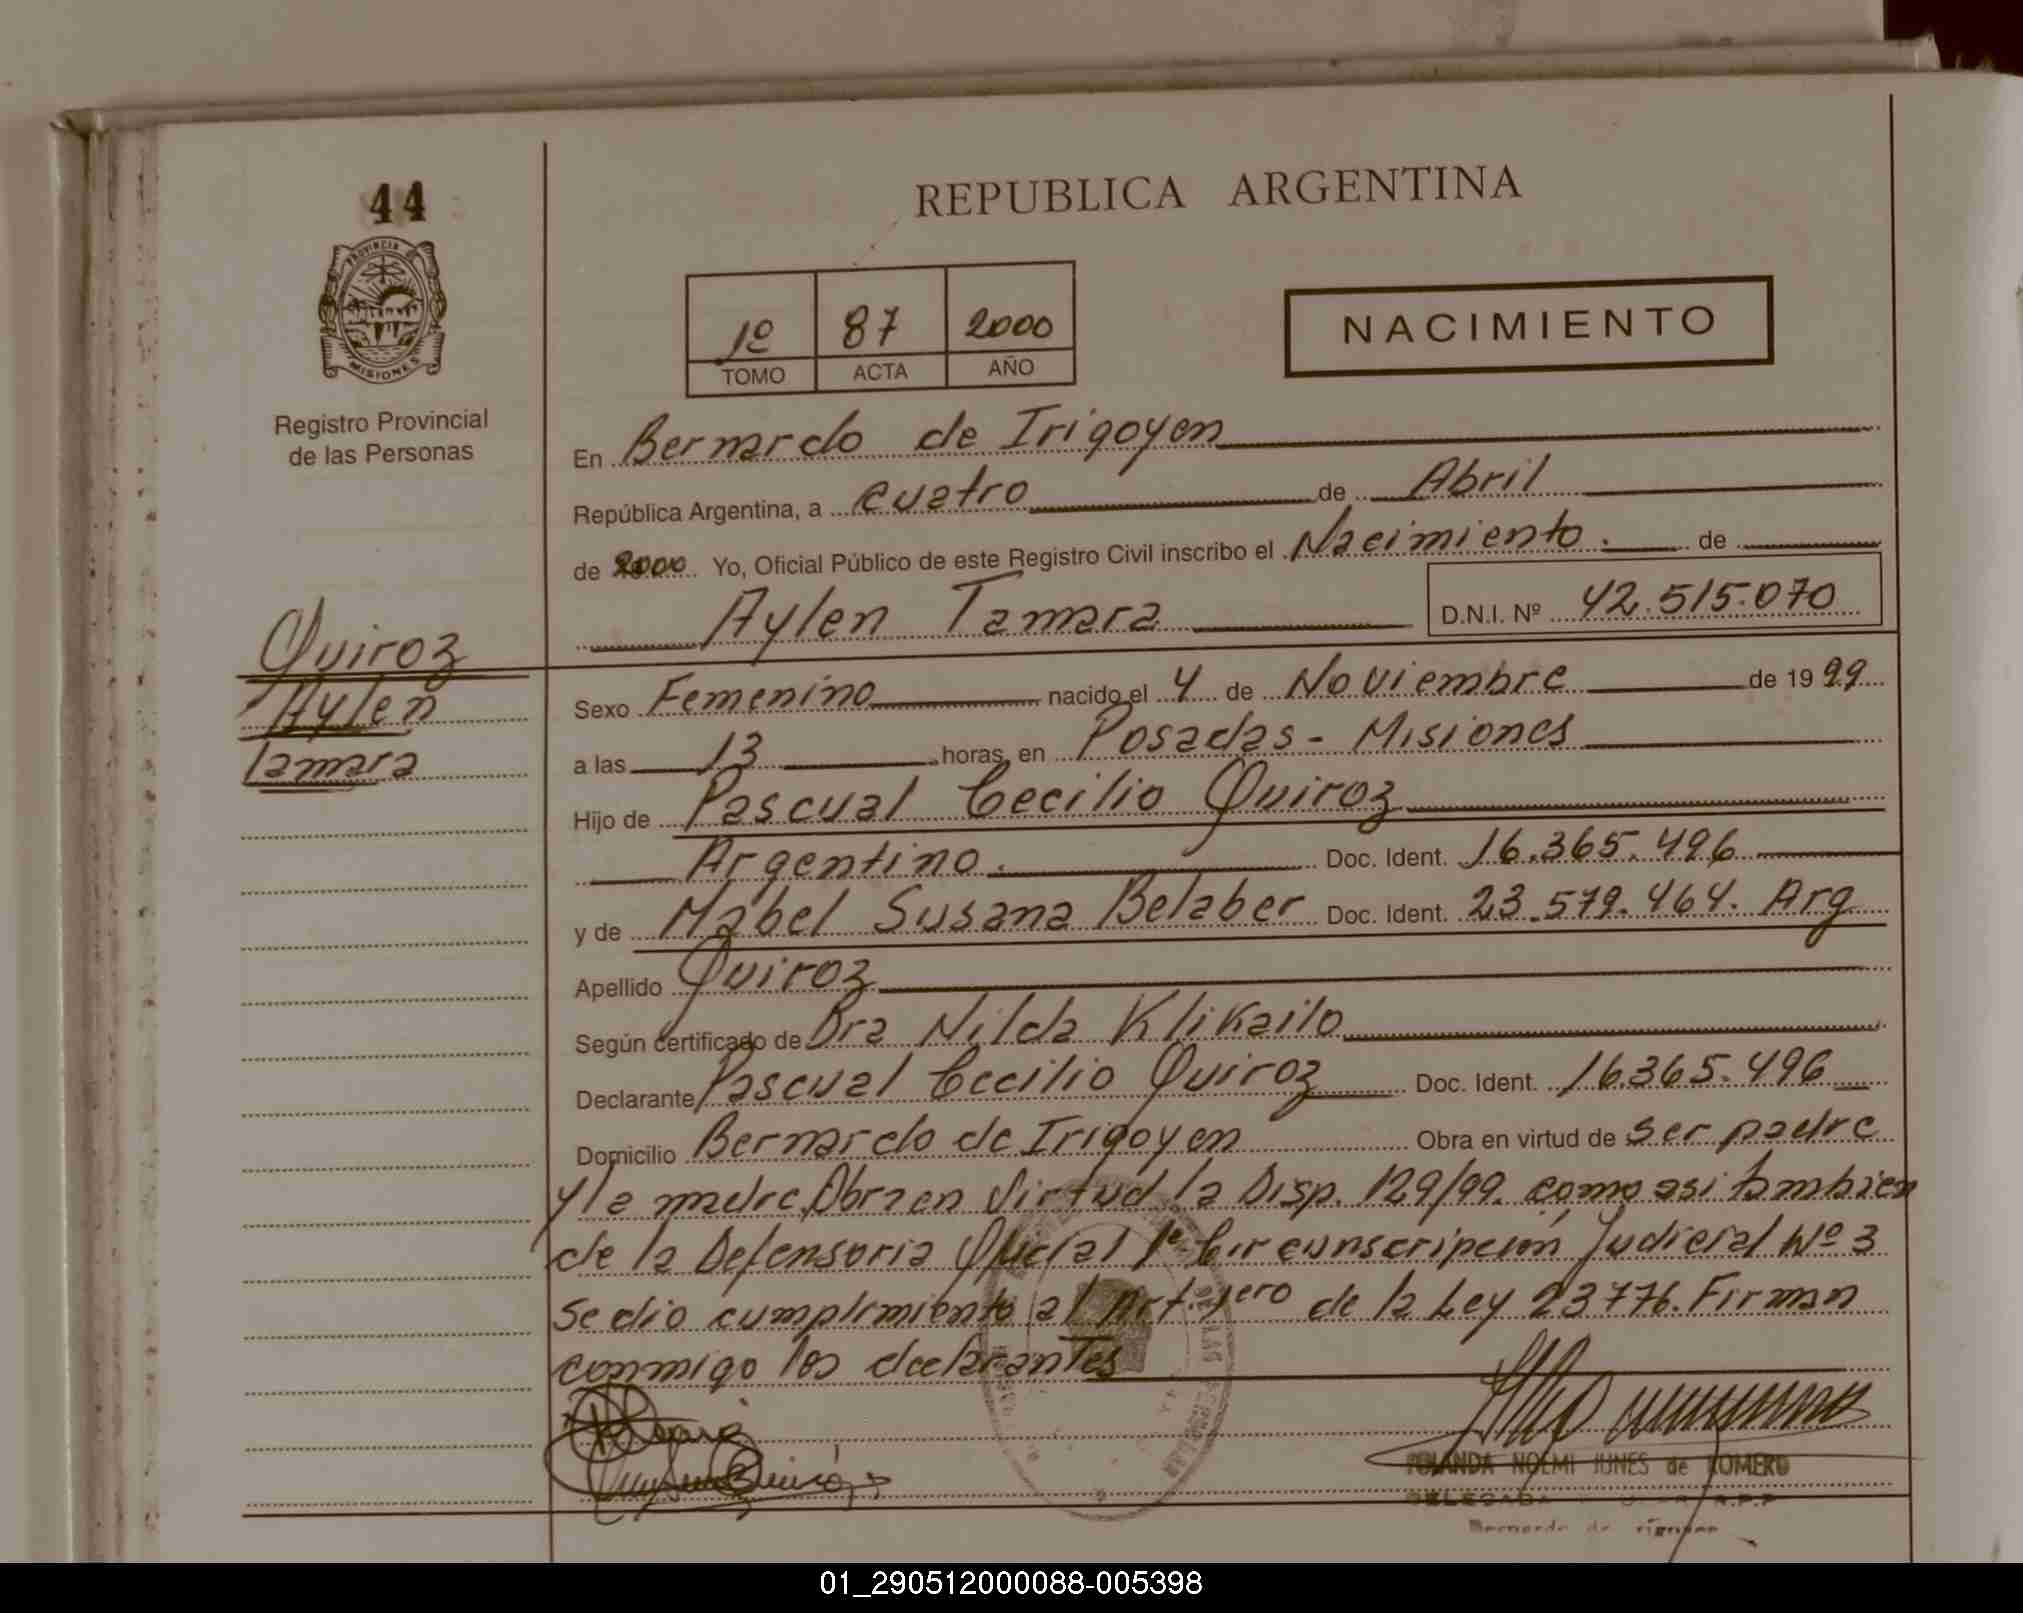 44
REPUBLICA ARGENTINA
PROVINCIA
MISIONES
1º 87 2000
TOMO ACTA AÑO
NACIMIENTO
Registro Provincial
de las Personas
En Bernardo de Irigoyen
República Argentina, a cuatro de Abril
de 2000 Yo, Oficial Público de este Registro Civil inscribo el Nacimiento. de
Aylen Tamara D.N.I. Nº 42.515.070
Quiroz
Aylen
Tamara
Sexo Femenino nacido el 4 de Noviembre de 1999
a las 13 horas, en Posadas - Misiones
Hijo de Pascual Cecilio Quiroz
Argentino. Doc. Ident. 16.365.496
y de Mabel Susana Belaber Doc. Ident. 23.579.464. Arg
Apellido Quiroz
Según certificado de Dra Nilda Klikailo
Declarante Pascual Cecilio Quiroz Doc. Ident. 16.365.496
Domicilio Bernardo de Irigoyen Obra en virtud de ser padre
y la madre, Obra en virtud la Disp. 129/99. como asi tambien
de la Defensoria Oficial 1º Circunscripción Judicial Nº 3
se dio cumplimiento al Art. 1ero de la Ley 23776. Firman
conmigo los declarantes
YOLANDA NOEMI JUNES de ROMERO
DELEGADA
Bernardo de Irigoyen
01_290512000088-005398